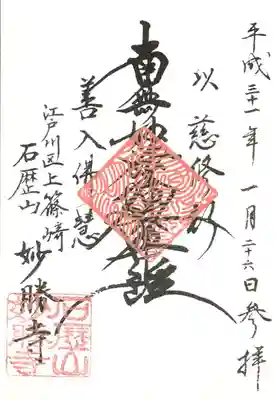 平成三十一年 一月二十六日参拝
以慈修身
南無妙法蓮華経
善入佛慧
江戸川区上篠崎
石歴山
妙勝寺